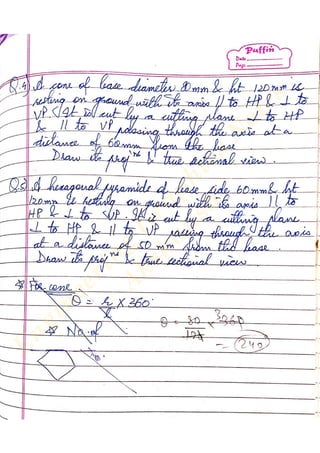 Puffin
Date
Page
Q.4) A cone of base diameter 80mm & ht 120mm is
resting on ground with its axis || to HP & ⊥ to
VP. It is cut by a cutting plane ⊥ to HP
& || to VP passing through the axis at a
distance of 60mm from the base
Draw its projⁿˢ & true sectional view.
Q.5) A hexagonal pyramide of base side 60mm & ht
120mm is resting on ground with its axis || to
HP & ⊥ to VP. It is cut by a cutting plane
⊥ to HP & || to VP passing through the axis
at a distance of 50 mm from the base.
Draw its projⁿˢ & true sectional view
For cone
θ = r/l × 360
No. of
θ = 80/ × 360
= 240